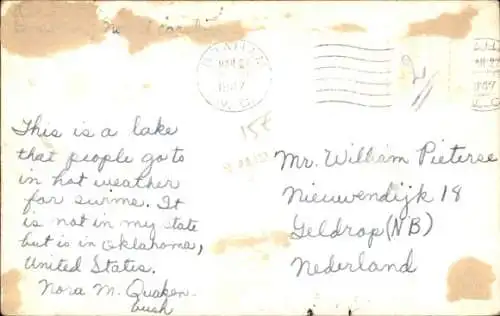 This is a lake
that people go to
in hot weather
for surme. It
is not in my state
but is in Oklahoma,
United States.
Nora M. Quaken-
bush
15¢
Mr. William Pieterse
Nieuwendijk 18
Geldrop (NB)
Nederland